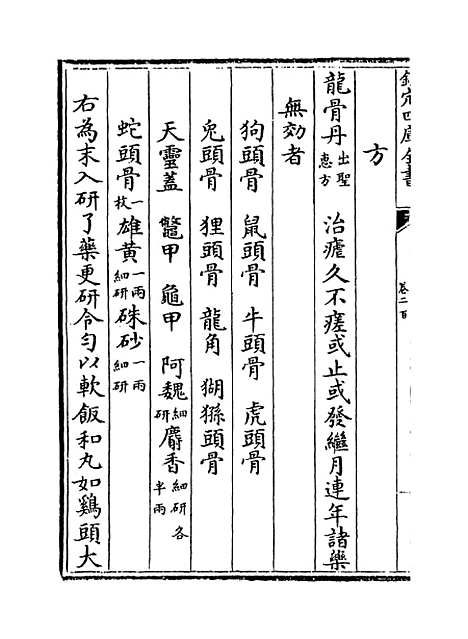 欽定四庫全書
卷二百
方
龍骨丹出聖惠方 治瘧久不瘥或止或發繼月連年諸藥
無効者
狗頭骨 鼠頭骨 牛頭骨 虎頭骨
兔頭骨 狸頭骨 龍角 猢猻頭骨
天靈蓋 鼈甲 龜甲 阿魏細研 麝香細研各半兩
蛇頭骨一枚 雄黃一兩細研 硃砂一兩細研
右為末入研了藥更研令勻以軟飯和丸如鷄頭大